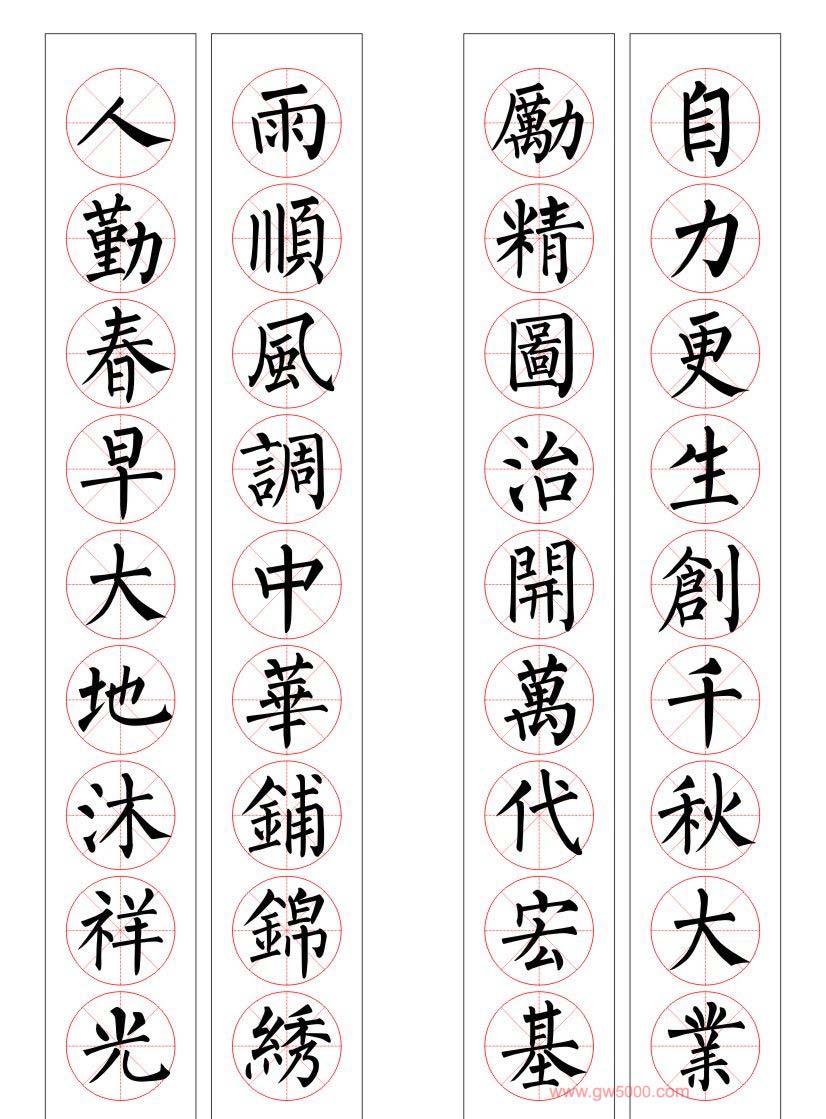 自力更生創千秋大業
勵精圖治開萬代宏基
雨順風調中華鋪錦綉
人勤春早大地沐祥光
www.gw5000.com